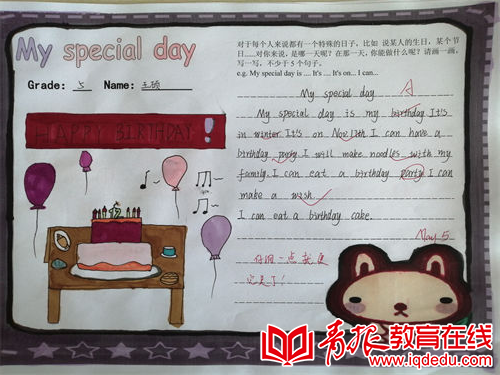 My special day
Grade: 5 Name: 王硕
HAPPY BIRTHDAY!
对于每个人来说都有一个特殊的日子，比如 说某人的生日，某个节
日……对你来说，是哪一天呢？在那一天，你能做什么呢？请画一画，
写一写，不少于5个句子。
e.g. My special day is .... It's .... It's on... I can...
My special day A
My special day is my birthday. It's
in winter. It's on Nov 12th. I can have a
birthday party. I will make noodles with my
family. I can eat a birthday party. I can
make a wish.
I can eat a birthday cake.
May 5
仔细一点就更
完美了！
青报教育在线
www.iqdedu.com